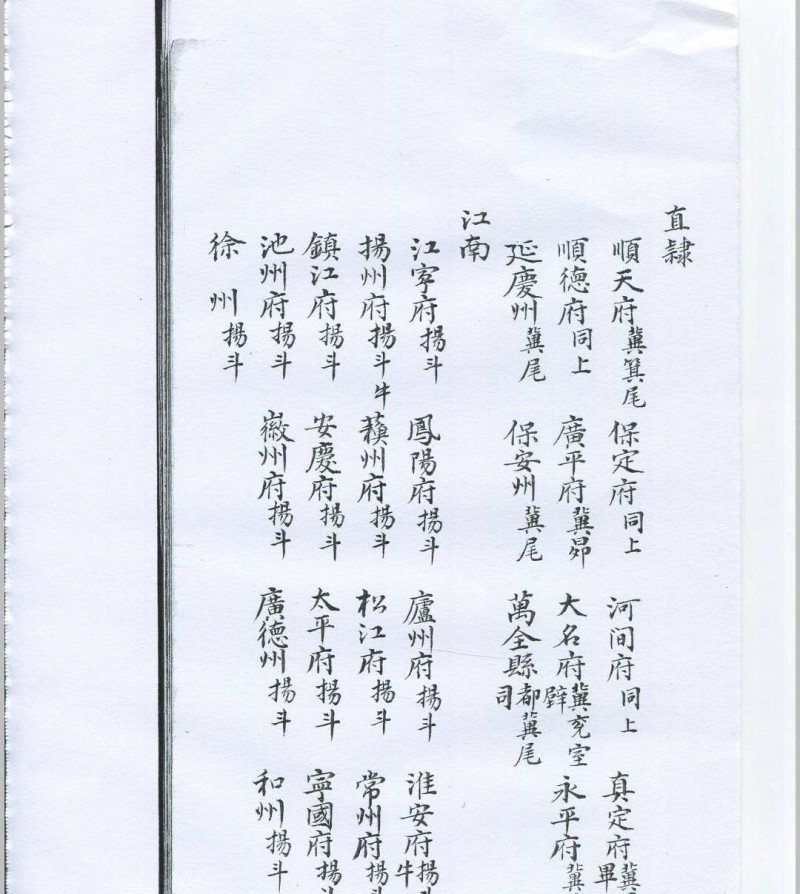 直隸
順天府冀箕尾 保定府同上 河间府同上 真定府冀畢
順德府同上 廣平府冀昴 大名府冀兖室壁 永平府冀
延慶州冀尾 保安州冀尾 萬全縣都司冀尾
江南
江寧府揚斗 鳳陽府揚斗 廬州府揚斗 淮安府揚斗牛
揚州府揚斗牛 蘓州府揚斗 松江府揚斗 常州府揚斗
鎮江府揚斗 安慶府揚斗 太平府揚斗 寧國府揚
池州府揚斗 徽州府揚斗 廣德州揚斗 和州揚斗
徐州揚斗